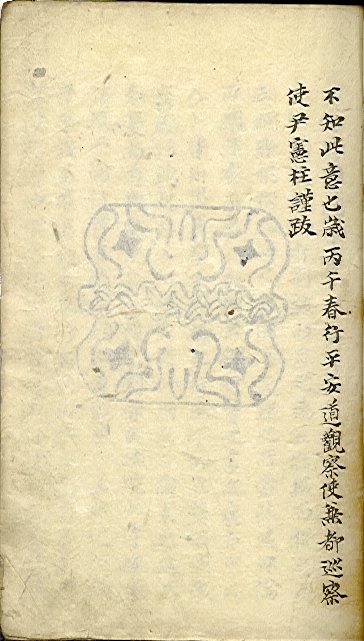 不知此意也歲丙午春行平安道觀察使兼都巡察
使尹憲柱謹跋